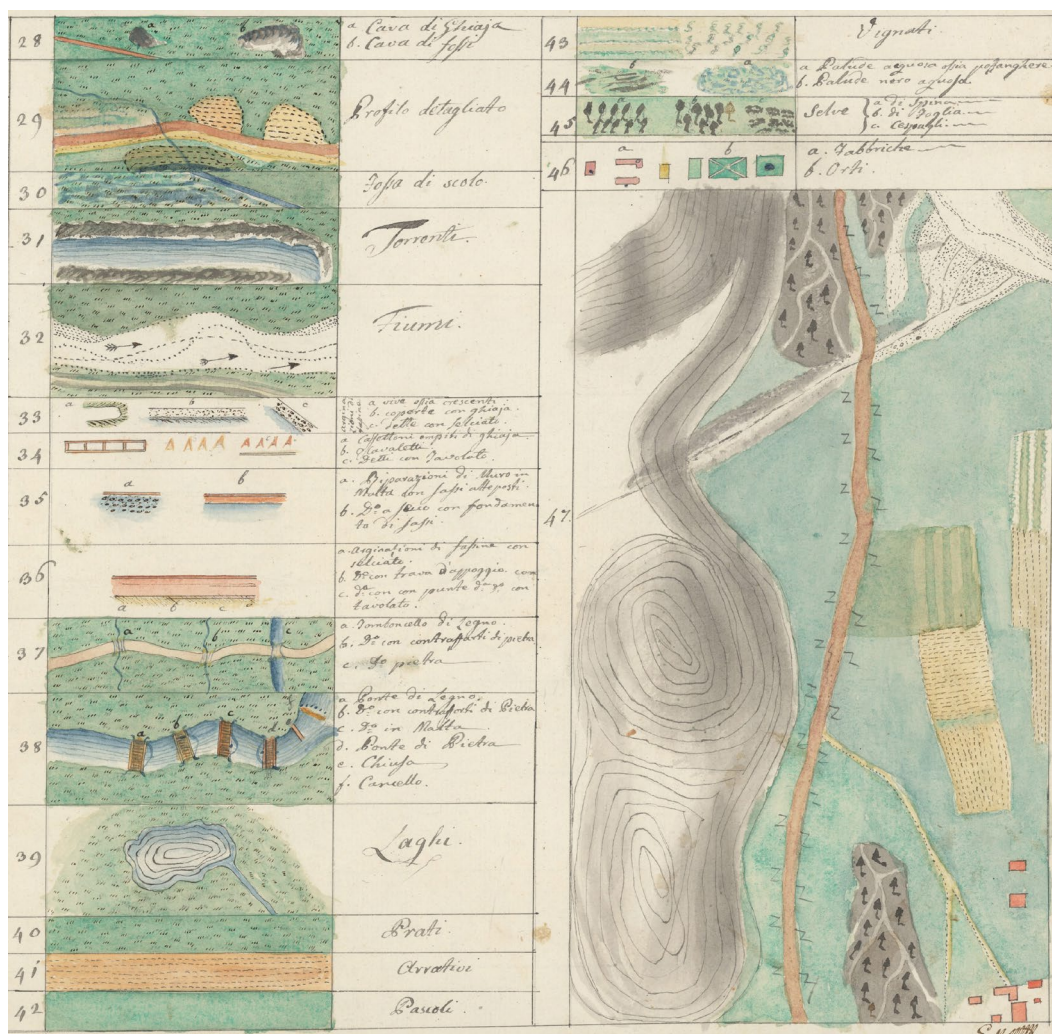 28
a
b
a Cava di Ghiaja
b. Cava di sassi
29
Profilo detagliato
30
Fossa di scolo.
31
Torrenti.
32
Fiumi.
33
a
b
c
a vive ossia crescenti
b. coperte con ghiaja.
c. dette con selciato.
34
a Cassettoni empiti di ghiaja
b. Cavaletti
c. Detti con Tavolato.
35
a
b
a. Riparazioni di Muro in
Malta con sassi atteposti.
b. Do. a secco con fondamen
to di sassi.
36
a
b
c
a Arginations di fassine con
selciato.
b. Do. con trava d'appoggio con
c. do. con con punte do. con
tavolato.
37
a
b
c
a. Tomboncello di Legno.
b. Do. con contrafforti di pietra
c. Do. pietra
38
a
b
c
d
a Ponte di Legno.
b. Do. con contrafforti di Pietra
c. Do. in Malta
d. Ponte di Pietra
e. Chiusa
f. Cancello.
39
Laghi
40
Prati.
41
Arrativi
42
Pascoli.
43
Vignati.
44
b
a
a Palude acquosa ossia possanghere
b. Palude non aquosa
45
Selve
a. di Spina
b. di Foglia
c. Cespugli
46
a
b
a. Fabbriche
b. Orti.
47.